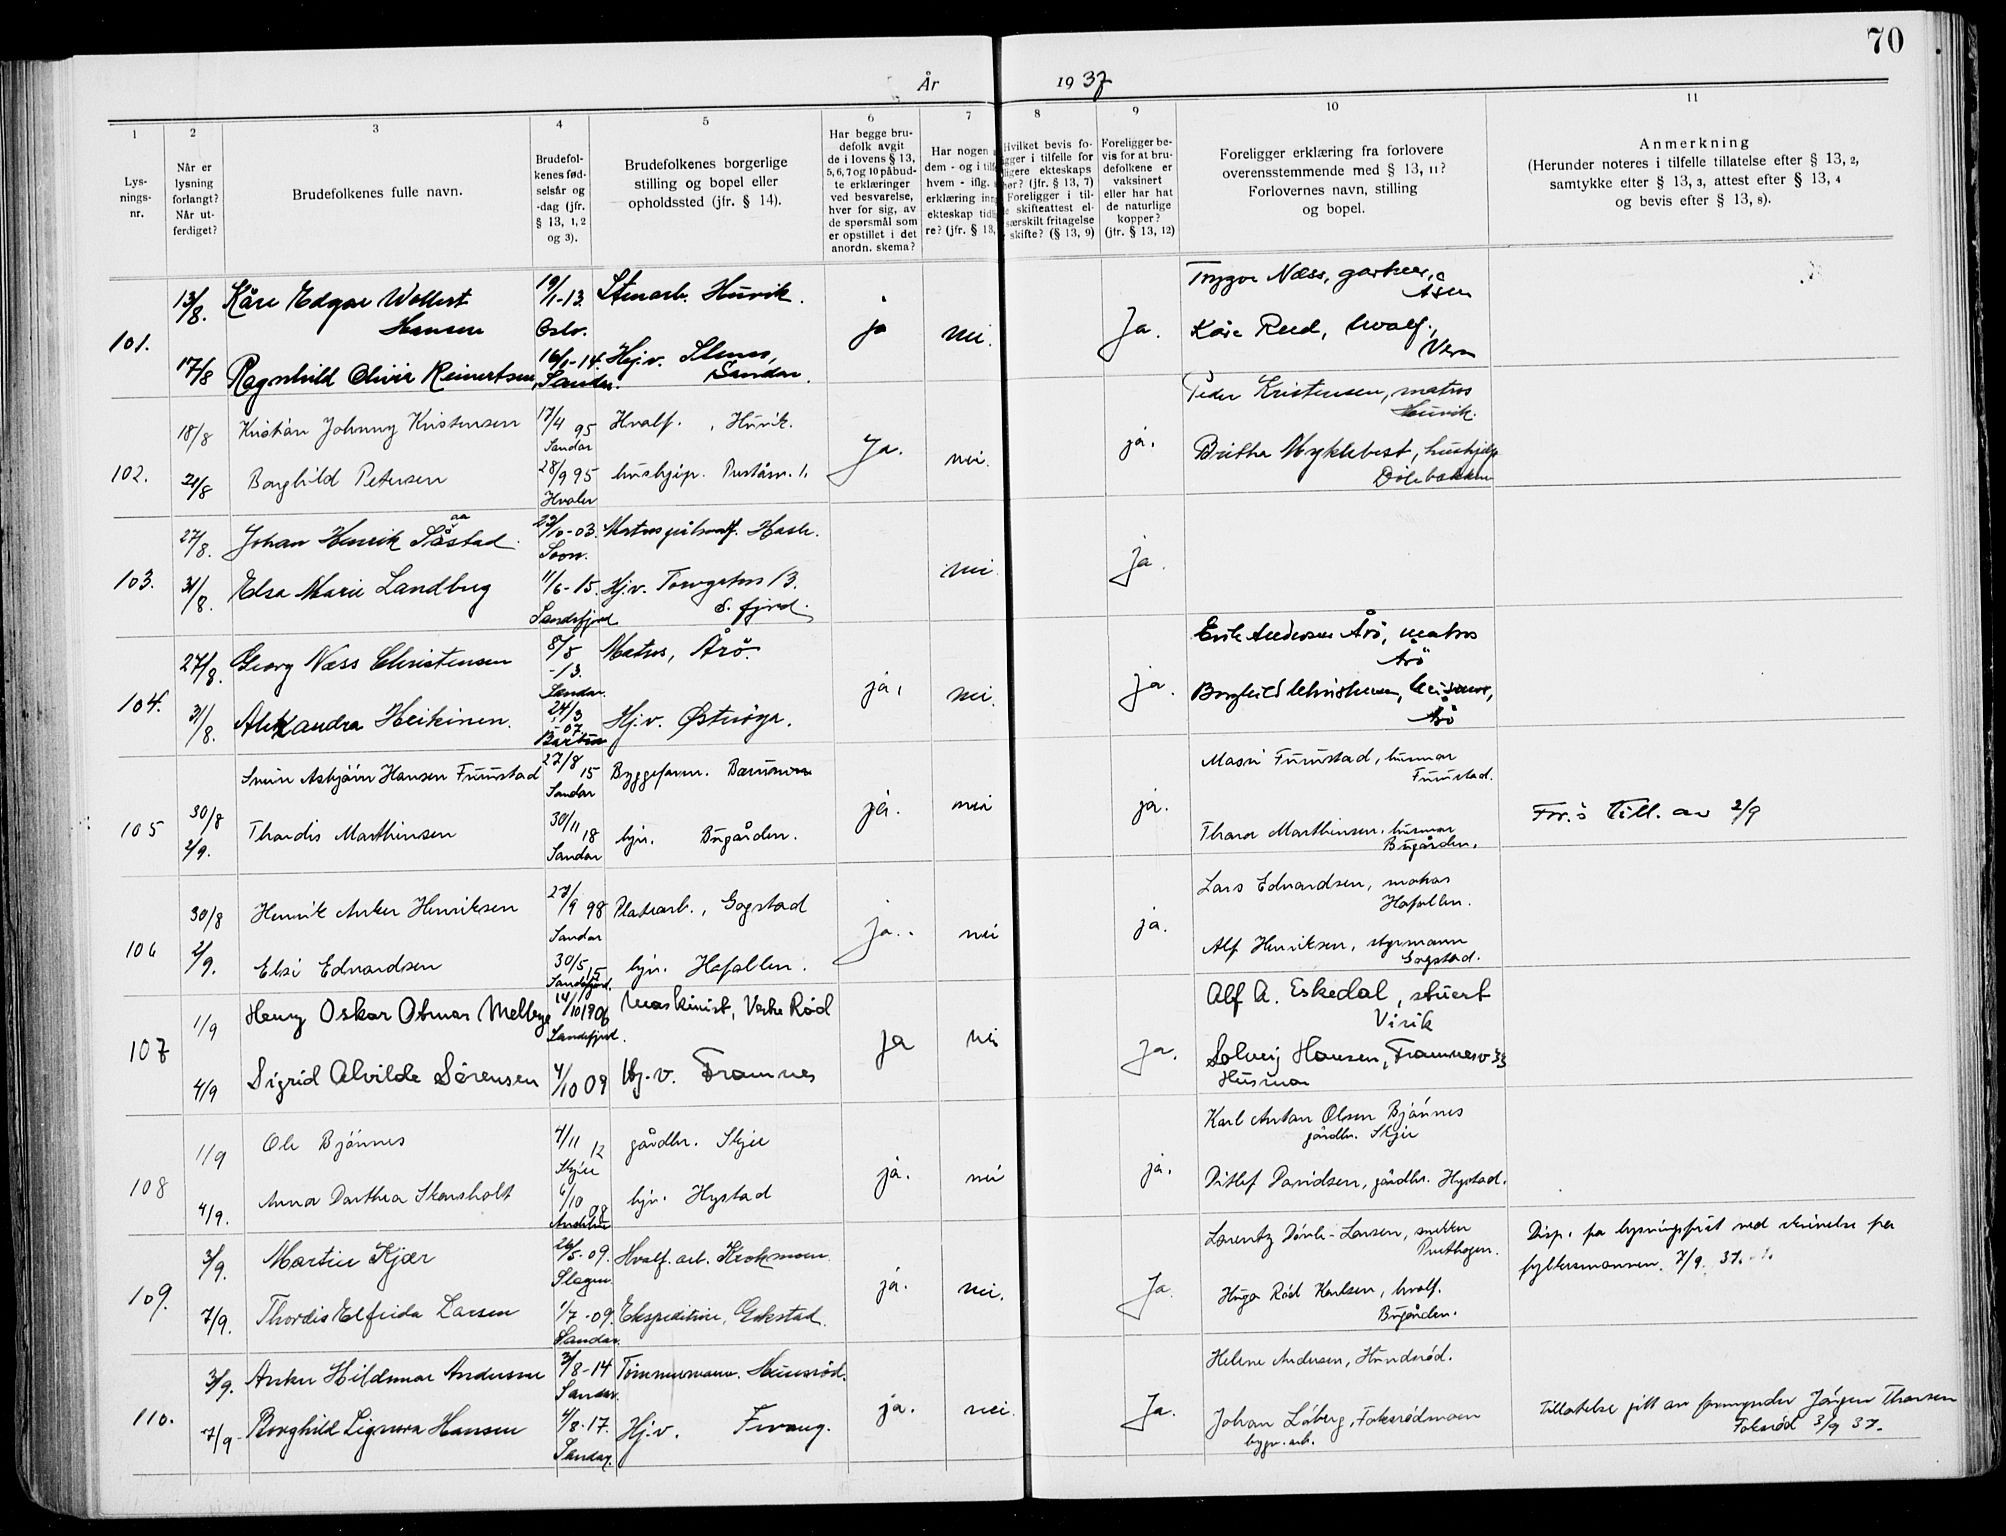 70
År 1937
1
2
3
4
5
6
7
8
9
10
11
Lys-
nings-
nr.
Når er
lysning
forlangt?
Når ut-
ferdiget?
Brudefolkenes fulle navn.
Brudefol-
kenes fød-
selsår og
-dag (jfr.
§ 13, 1, 2
og 3).
Brudefolkenes borgerlige
stilling og bopel eller
opholdssted (jfr. § 14).
Har begge bru-
defolk avgit
de i lovens § 13,
5, 6, 7 og 10 påbud-
te erklæringer
ved besvarelse,
hver for sig, av
de spørsmål som
er opstillet i det
anordn. skema?
Har nogen
dem - og i tilf
hvem - iflg.
erklæring inn
ekteskap tid
re? (jfr. § 13,
Hvilket bevis fo-
gger i tilfelle for
ligere ekteskaps
hør? (jfr. § 13, 7)
Foreligger i til-
e skifteattest el-
særskilt fritagelse
skifte? (§ 13, 9)
Foreligger be-
vis for at bru-
defolkene er
vaksinert
eller har hat
de naturlige
kopper?
(jfr. § 13, 12)
Foreligger erklæring fra forlovere
overensstemmende med § 13, 11?
Forlovernes navn, stilling
og bopel.
Anmerkning
(Herunder noteres i tilfelle tillatelse efter § 13, 2,
samtykke efter § 13, 3, attest efter § 13, 4
og bevis efter § 13, 8).
101.
13/8.
Kåre Edgar Wollert
Hansen
19/1-13.
Oslo.
Stenarb. Huvik.
ja
nei.
Ja.
Trygve Næss, gartner,
Åsen
Kåre Rud, hvalf.,
Vera
17/8
Ragnhild Olivie Reinertsen,
16/1-14.
Sandar.
Hj.v. Stenes,
Sandar.
102.
18/8
Kristian Johnny Kristensen
17/4 95
Sandar
Hvalf. , Huvik.
Ja.
nei.
ja.
Peder Kristensen, matros
Huvik.
21/8
Borghild Petersen
28/9 95
Hvaler
hushjep.
Britha Myklebost, hushjelp
Dølebakken
103.
27/8.
Johan Henrik Såstad
aa
29/10-03.
Soon.
Hasle.
nei
ja.
31/8.
Elsa Marie Landberg
11/6-15.
Sandefjord
Hj.v. Torvgaten 13.
S. fjord.
104.
27/8.
Georg Næss Christensen
8/5
-13.
Sandar.
Matros, Årö.
ja,
nei
ja.
Erik Andersen Årö, matros
Årö
31/8.
Alexandra Heikinen.
24/3
-07
Hj.v. Østerøya.
Borghild Christensen,
Årö
105
30/8
Svein Asbjörn Hansen Furustad
27/8 15
Sandar
Byggeform.
ja.
nei
ja.
Masri Furustad, husmor
Furustad.
For.s Till. av 2/9
2/9.
Thordis Marthinsen
30/11 18
Sandar
hjv. Bugården.
Thora Marthinsen, husmor
Bugården.
106
30/8
Henrik Anker Henriksen
27/9 98
Sandar
Platearb., Gogstad
ja.
nei
ja.
Lars Edvardsen, matros
Hafallen.
2/9.
Elsi Edvardsen
30/5 15
Sandefjord.
hjv. Hafallen.
Alf Henriksen, styrmann
Gogstad.
107
1/9
Henry Oskar Otmar Melbye
14/10 1906
Sandefjord.
Maskinist, Vestre Rød
ja
nei
Ja.
Alf A. Eskedal, stuert
Virik
4/9
Sigrid Alvilde Sörensen
4/10 09
Hj.v. Framnes
Solveig Hansen, Framnesv 33
Husmor
108
1/9
Ole Bjönnes
4/11 12
Skjee
gårdbr. Skjee
ja.
nei
ja.
Karl Anton Olsen Bjönnes
gårdbr. Skjee
4/9.
Anna Dorthea Skarsholt
6/10 08
Andebu
hjv. Hystad
Ditlef Davidsen, gårdbr. Hystad.
109.
3/9.
Martin Kjær
26/5-09.
Slagen
Hvalf. arb. Krokemoen
ja.
nei.
Ja.
Lorentz Dövle-Larsen, snekker
Preståsen.
Disp. fra lysningsfrist ved skrivelse fra
fylkesmannen. 7/9 37.
7/9.
Thordis Elfrida Larsen
1/7-09.
Sandar.
Ekspeditrise, Gokstad.
Hugo Röd Karlsen, hvalf.
Bugården.
110.
3/9.
Anker Hildemar Andersen
3/8-14
Sandar.
Tömmermann. Hunsröd.
ja.
nei.
Ja.
Helene Andersen, Hundsröd.
7/9-
Borghild Signora Hansen
4/8-17.
Sandar.
Hj.v. Fevang.
Johan Löberg, Fokserödmoen
bygn. arb.
Tillatelse gitt av formynder Jörgen Thorsen
Fokseröd 3/9 37.